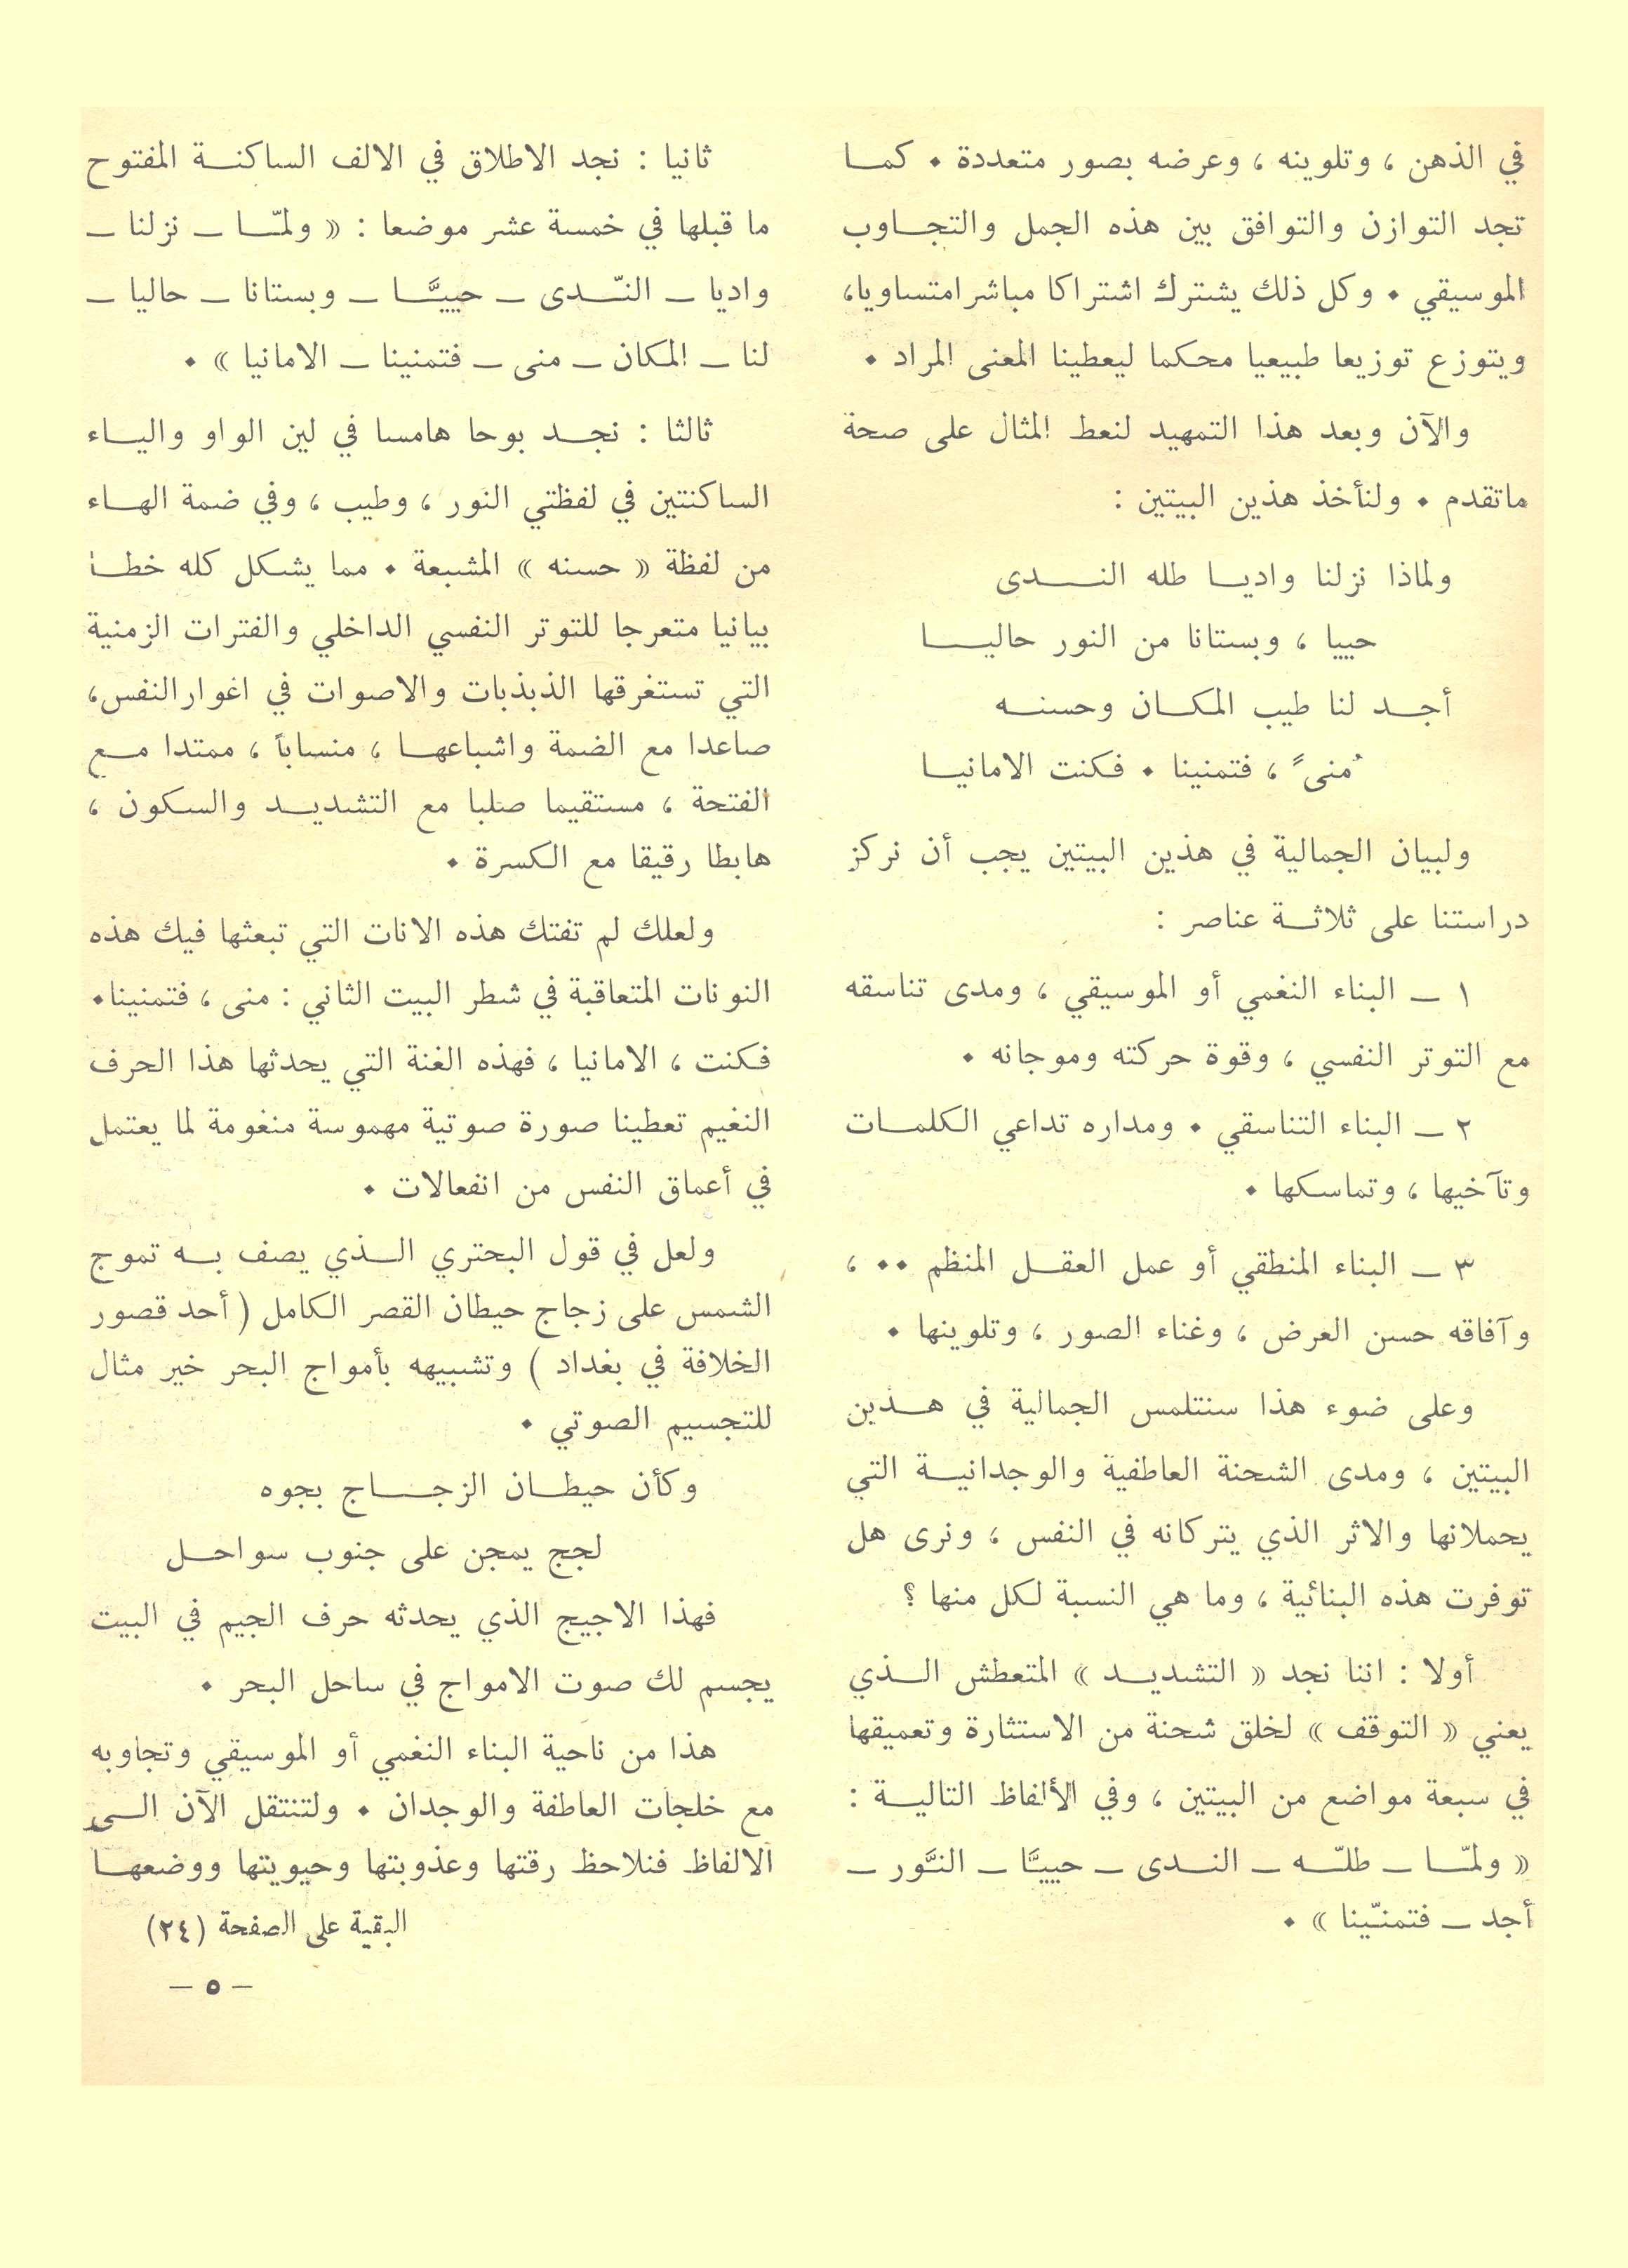 في الذهن ، وتلوينه ، وعرضه بصور متعددة • كما
تجد التوازن والتوافق بين هذه الجمل والتجاوب
الموسيقي • وكل ذلك يشترك اشتراكا مباشرامتساويا،
ويتوزع توزيعا طبيعيا محكما ليعطينا المعنى المراد •
والآن وبعد هذا التمهيد لنعط المثال على صحة
ماتقدم • ولنأخذ هذين البيتين :
ولماذا نزلنا واديا طله الندى
حييا ، وبستانا من النور حاليا
أجد لنا طيب المكان وحسنه
ُمنىً ، فتمنينا • فكنت الامانيا
ولبيان الجمالية في هذين البيتين يجب أن نركز
دراستنا على ثلاثة عناصر :
١ – البناء النغمي أو الموسيقي ، ومدى تناسقه
مع التوتر النفسي ، وقوة حركته وموجانه •
٢ – البناء التناسقي • ومداره تداعي الكلمات
وتآخيها ، وتماسكها •
٣ – البناء المنطقي أو عمل العقل المنظم •• ،
وآفاقه حسن العرض ، وغناء الصور ، وتلوينها •
وعلى ضوء هذا سنتلمس الجمالية في هذين
البيتين ، ومدى الشحنة العاطفية والوجدانية التي
يحملانها والاثر الذي يتركانه في النفس ، ونرى هل
توفرت هذه البنائية ، وما هي النسبة لكل منها ؟
أولا : اننا نجد « التشديد » المتعطش الذي
يعني « التوقف » لخلق شحنة من الاستثارة وتعميقها
في سبعة مواضع من البيتين ، وفي الألفاظ التالية :
« ولمّا – طلّه – الندى – حييَّا – النَّور –
أجد – فتمنّينا » •
ثانيا : نجد الاطلاق في الالف الساكنة المفتوح
ما قبلها في خمسة عشر موضعا : « ولمّا – نزلنا –
واديا – النّدى – حييَّا – وبستانا – حاليا –
لنا – المكان – منى – فتمنينا – الامانيا » •
ثالثا : نجد بوحا هامسا في لين الواو والياء
الساكنتين في لفظتي النور ، وطيب ، وفي ضمة الهاء
من لفظة « حسنه » المشبعة • مما يشكل كله خطا
بيانيا متعرجا للتوتر النفسي الداخلي والفترات الزمنية
التي تستغرقها الذبذبات والاصوات في اغوارالنفس،
صاعدا مع الضمة واشباعها ، منساباً ، ممتدا مع
الفتحة ، مستقيما صلبا مع التشديد والسكون ،
هابطا رقيقا مع الكسرة •
ولعلك لم تفتك هذه الانات التي تبعثها فيك هذه
النونات المتعاقبة في شطر البيت الثاني : منى ، فتمنينا•
فكنت ، الامانيا ، فهذه الغنة التي يحدثها هذا الحرف
النغيم تعطينا صورة صوتية مهموسة منغومة لما يعتمل
في أعماق النفس من انفعالات •
ولعل في قول البحتري الذي يصف به تموج
الشمس على زجاج حيطان القصر الكامل ( أحد قصور
الخلافة في بغداد ) وتشبيهه بأمواج البحر خير مثال
للتجسيم الصوتي •
وكأن حيطان الزجاج بجوه
لجج يمجن على جنوب سواحل
فهذا الاجيج الذي يحدثه حرف الجيم في البيت
يجسم لك صوت الامواج في ساحل البحر •
هذا من ناحية البناء النغمي أو الموسيقي وتجاوبه
مع خلجات العاطفة والوجدان • ولتنتقل الآن الى
الالفاظ فنلاحظ رقتها وعذوبتها وحيويتها ووضعها
البقية على الصفحة (٢٤)
– ٥ –